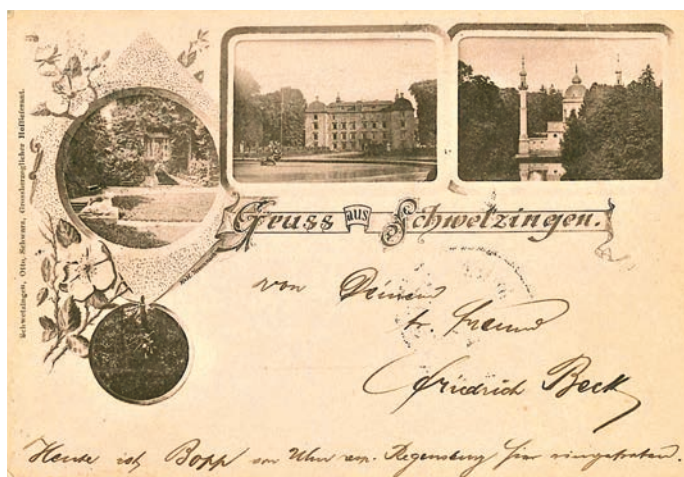 Schwetzingen, Otto, Schwarz, Grossherzoglicher Hoflieferant.
Gruss aus Schwetzingen.
von Deinem
tr. Freund
Friedrich Beck
Heute ist Bopp von Ulm resp. Regensburg hier eingetreten.